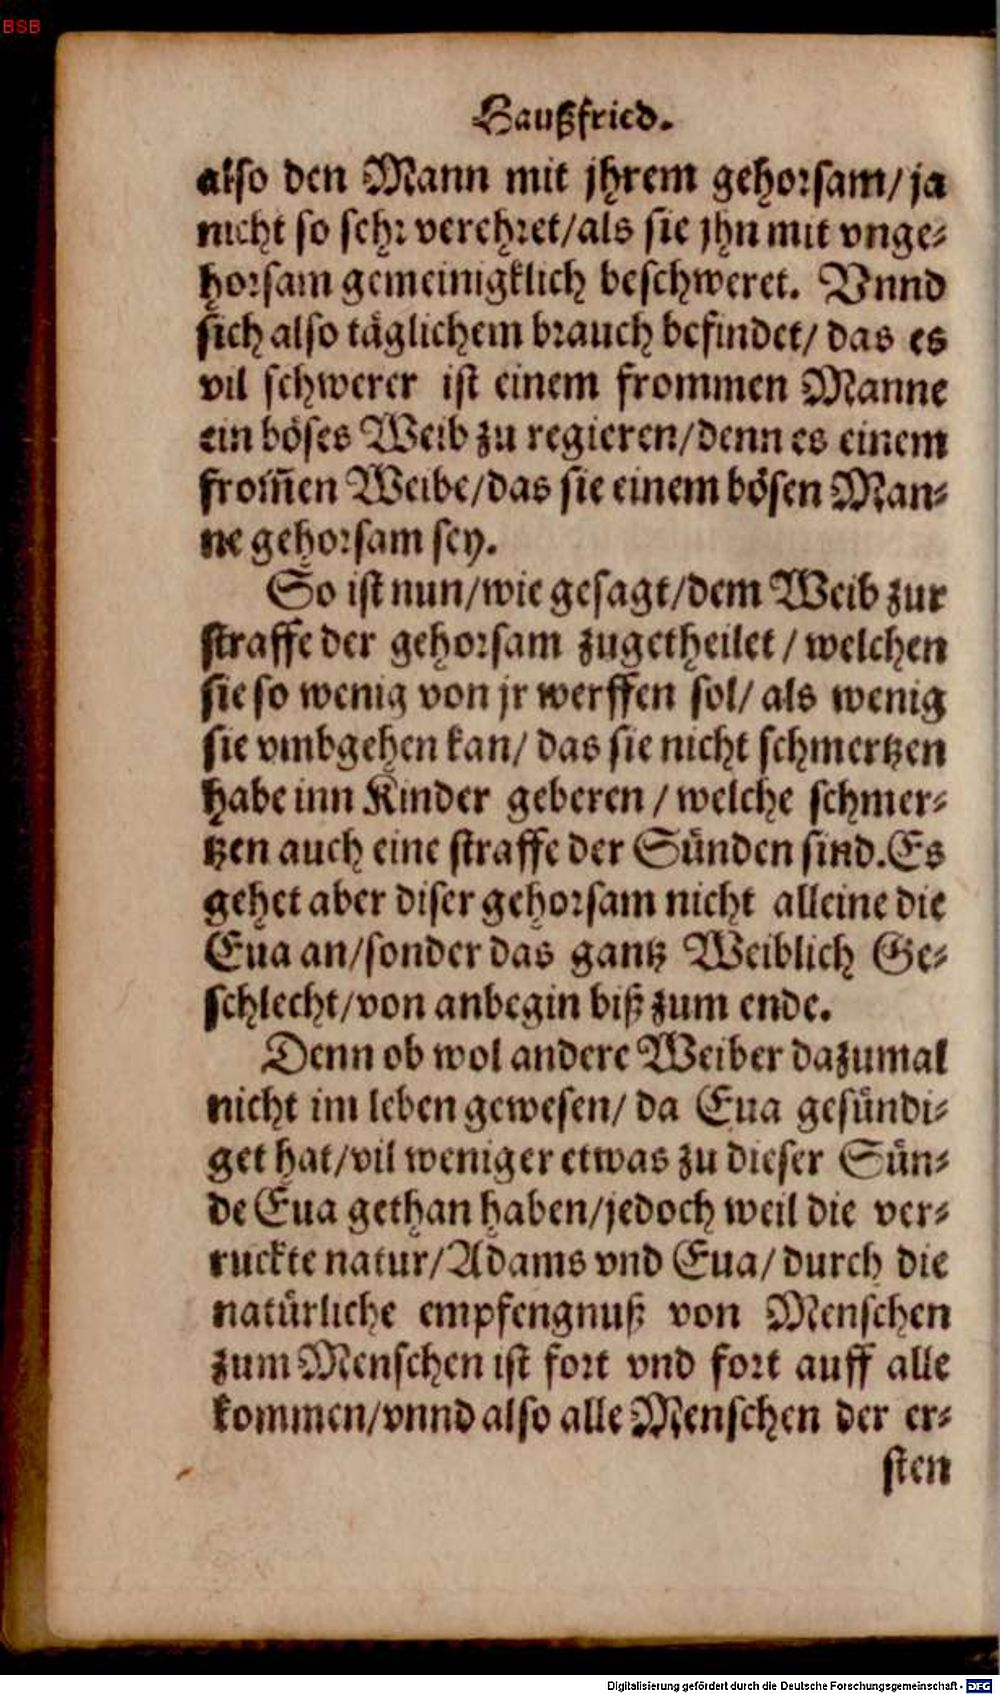 BSB
Haußfried.
also den Mann mit jhrem gehorsam/ ja
nicht so sehr verehret/als sie jhn mit vnge⸗
horsam gemeinigklich beschweret. Vnnd
sich also täglichem brauch befindet/ das es
vil schwerer ist einem frommen Manne
ein böses Weib zu regieren/denn es einem
from̃en Weibe/das sie einem bösen Man⸗
ne gehorsam sey.
So ist nun/wie gesagt/dem Weib zur
straffe der gehorsam zugetheilet / welchen
sie so wenig von jr werffen sol/ als wenig
sie vmbgehen kan/ das sie nicht schmertzen
habe inn Kinder geberen / welche schmer⸗
tzen auch eine straffe der Sünden sind. Es
gehet aber diser gehorsam nicht alleine die
Eua an/sonder das gantz Weiblich Ge⸗
schlecht/von anbegin biß zum ende.
Denn ob wol andere Weiber dazumal
nicht im leben gewesen/ da Eua gesündi⸗
get hat/vil weniger etwas zu dieser Sün⸗
de Eua gethan haben/jedoch weil die ver⸗
ruckte natur/Adams vnd Eua/ durch die
natürliche empfengnuß von Menschen
zum Menschen ist fort vnd fort auff alle
kommen/vnnd also alle Menschen der er⸗
sten
Digitalisierung gefördert durch die Deutsche Forschungsgemeinschaft - DFG